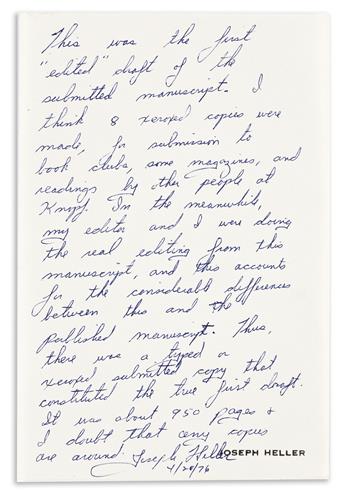 This was the first
"edited" draft of the
submitted manuscript. I
think 8 xeroxed copies were
made, for submission to
book clubs, some magazines, and
readings by other people at
Knopf. In the meanwhile,
my editor and I were doing
the real editing from this
manuscript, and this accounts
for the considerable differences
between this and the
published manuscript. Thus,
there was a typed or
xeroxed submitted copy that
constituted the true first draft.
It was about 950 pages &
I doubt that any copies
are around. Joseph Heller
JOSEPH HELLER
4/28/76